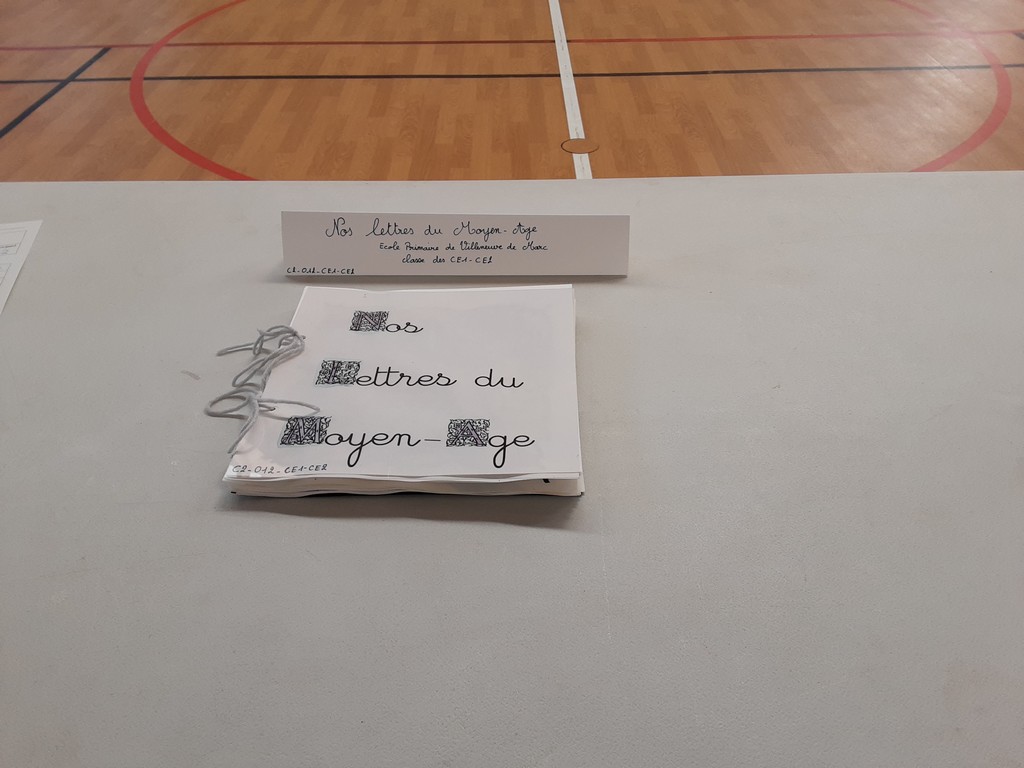 Nos lettres du Moyen-Age
Ecole Primaire de Villeneuve de Marc
classe des CE1-CE2
C2-012-CE1-CE2
Nos
Lettres du
Moyen-Age
C2-012-CE1-CE2